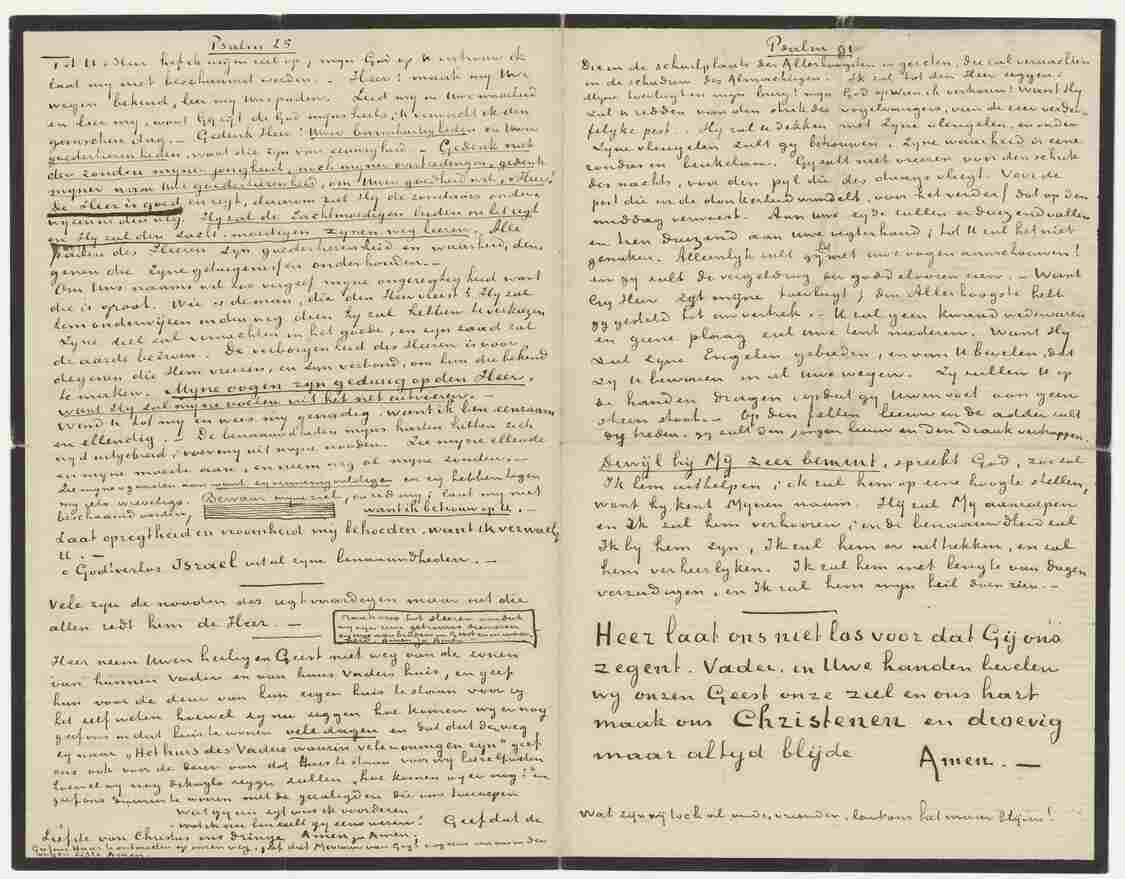 Psalm 25
Tot U o Heer hef ik mijn ziel op, mijn God op U vertrouw ik
laat my niet beschaamd worden. - Heer! maak my Uwe
wegen bekend, leer my Uwe paden. Leid my in Uwe waarheid
en leer my, want Gy zyt de God myns heils, U verwacht ik den
ganschen dag. - Gedenk Heer! Uwer barmhartigheden en Uwer
goedertierenheden, want die zyn van eeuwigheid. - Gedenk niet
der zonden myner jongheid, noch myner overtredingen, gedenk
myner naar Uwe goedertierenheid, om Uwer goedheid wil, o Heer!
De Heer is goed en regt, daarom zal Hy de zondaars onder-
wyzen in den weg. Hy zal de zachtmoedigen leiden in het regt
en Hy zal den zacht-moedigen zynen weg leeren. Alle
paden des Heeren zyn goedertierenheid en waarheid, den
genen die Zyne getuigenissen onderhouden. -
Om Uws naams wil zoo vergeef myne ongeregtigheid want
die is groot. Wie is de man, die den Heer vreest? Hy zal
hem onderwyzen in den weg dien hy zal hebben te verkiezen
Zyne ziel zal vernachten in het goede, en zyn zaad zal
de aarde beërven. De verborgenheid des Heeren is voor
degenen, die Hem vreezen, en Zyn verbond, om hun die bekend
te maken. Myne oogen zyn gedurig op den Heer,
want Hy zal myne voeten uit het net uitvoeren. -
Wend U tot my en wees my genadig, want ik ben eenzaam
en ellendig. - De benaauwdheden mijns harten hebben zich
wyd uitgebreid, voer my uit myne nooden. Zie myne ellende
en myne moeite aan, en neem weg al myne zonden. -
Zie myne vyanden aan want zy vermenigvuldigen en zy hebben tegen
my iets wreveligs. Bewaar myne ziel, en red my; laat my niet
beschaamd worden, want ik betrouw op U. -
Laat opregtheid en vroomheid mij behoeden, want ik verwacht
U. -
o God! verlos Israel uit al zyne benaauwdheden. -
Vele zyn de nooden des regtvaardigen maar uit die
allen redt hem de Heer. -
Heer neem Uwen heiligen Geest niet weg van de zonen
van hunnen Vader en van huns Vaders huis, en geef
hun voor de deur van hun eigen huis te staan voor zy
het zelf weten hoewel zy nu zeggen hoe komen wy er nog
geef ons in dat huis te wonen vele dagen en God dat de weg
zy naar „Het huis des Vaders waarin vele woningen zyn” geef
ons ook voor de deur van dat Huis te staan voor wy het zelf weten
hoewel wy nog dikwyls zeggen zullen „hoe komen wy er nog?” en
geef ons daarin te wonen met de gezaligden die ons toeroepen
Wat gy nu zyt was ik voordezen
wat ik nu ben zult gy eens wezen! Geef dat de
Liefde van Christus ons dringe Amen ja Amen.
Psalm 91
Die in de schuilplaats des Allerhoogsten is gezeten, die zal vernachten
in de schaduw des Almachtigen. Ik zal tot den Heer zeggen:
Myne toevlugt en mijn burg! mijn God op wien ik vertrouw! Want Hy
zal u redden van den strik des vogelvangers, van de zeer verder-
felyke pest. Hy zal u dekken met Zyne vleugelen, en onder
Zyne vleugelen zult gy betrouwen. Zyne waarheid is eene
rondas en beukelaar. Gy zult niet vreezen voor den schrik
des nachts, voor den pyl die des daags vliegt. Voor de
pest die in de donkerheid wandelt, voor het verderf dat op den
middag verwoest. Aan uwe zyde zullen er duizend vallen
en tien duizend aan uwe regterhand; tot U zal het niet
genaken. Alleenlyk zult gy het met uwe oogen aanschouwen!
en gy zult de vergelding der goddeloozen zien. - Want
Gy Heer zyt myne toevlugt; den Allerhoogste hebt
gy gesteld tot uw vertrek. - U zal geen kwaad wedervaren
en geene plaag zal uwe tent naderen. Want Hy
zal Zyne Engelen gebieden, en van U bevelen, dat
Zy U bewaren in al uwe wegen. Zy zullen U op
de handen dragen opdat gy Uwen voet aan geen
steen stoot. - Op den fellen leeuw en de adder zult
gy treden, gy zult den jongen leeuw en den draak vertrappen.
Dewijl hy Mij zeer bemint, spreekt God, zoo zal
Ik hem uithelpen; ik zal hem op eene hoogte stellen,
want hy kent Mynen naam. Hij zal My aanroepen
en Ik zal hem verhooren; in de benaauwdheid zal
Ik by hem zyn, Ik zal hem er uittrekken, en zal
hem verheerlyken. Ik zal hem met lengte van dagen
verzadigen, en Ik zal hem mijn heil doen zien. -
Heer laat ons niet los voor dat Gij ons
zegent. Vader, in Uwe handen bevelen
wy onzen Geest onze ziel en ons hart
maak ons Christenen en droevig
maar altyd blijde
Amen. -
Wat zyn wij toch al oude vrienden, laat ons het maar blijven!